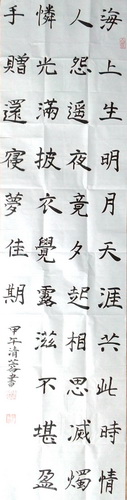 海上生明月天涯共此時情
人怨遙夜竟夕起相思滅燭
憐光滿披衣覺露滋不堪盈
手贈還寢夢佳期
甲午清蓉書